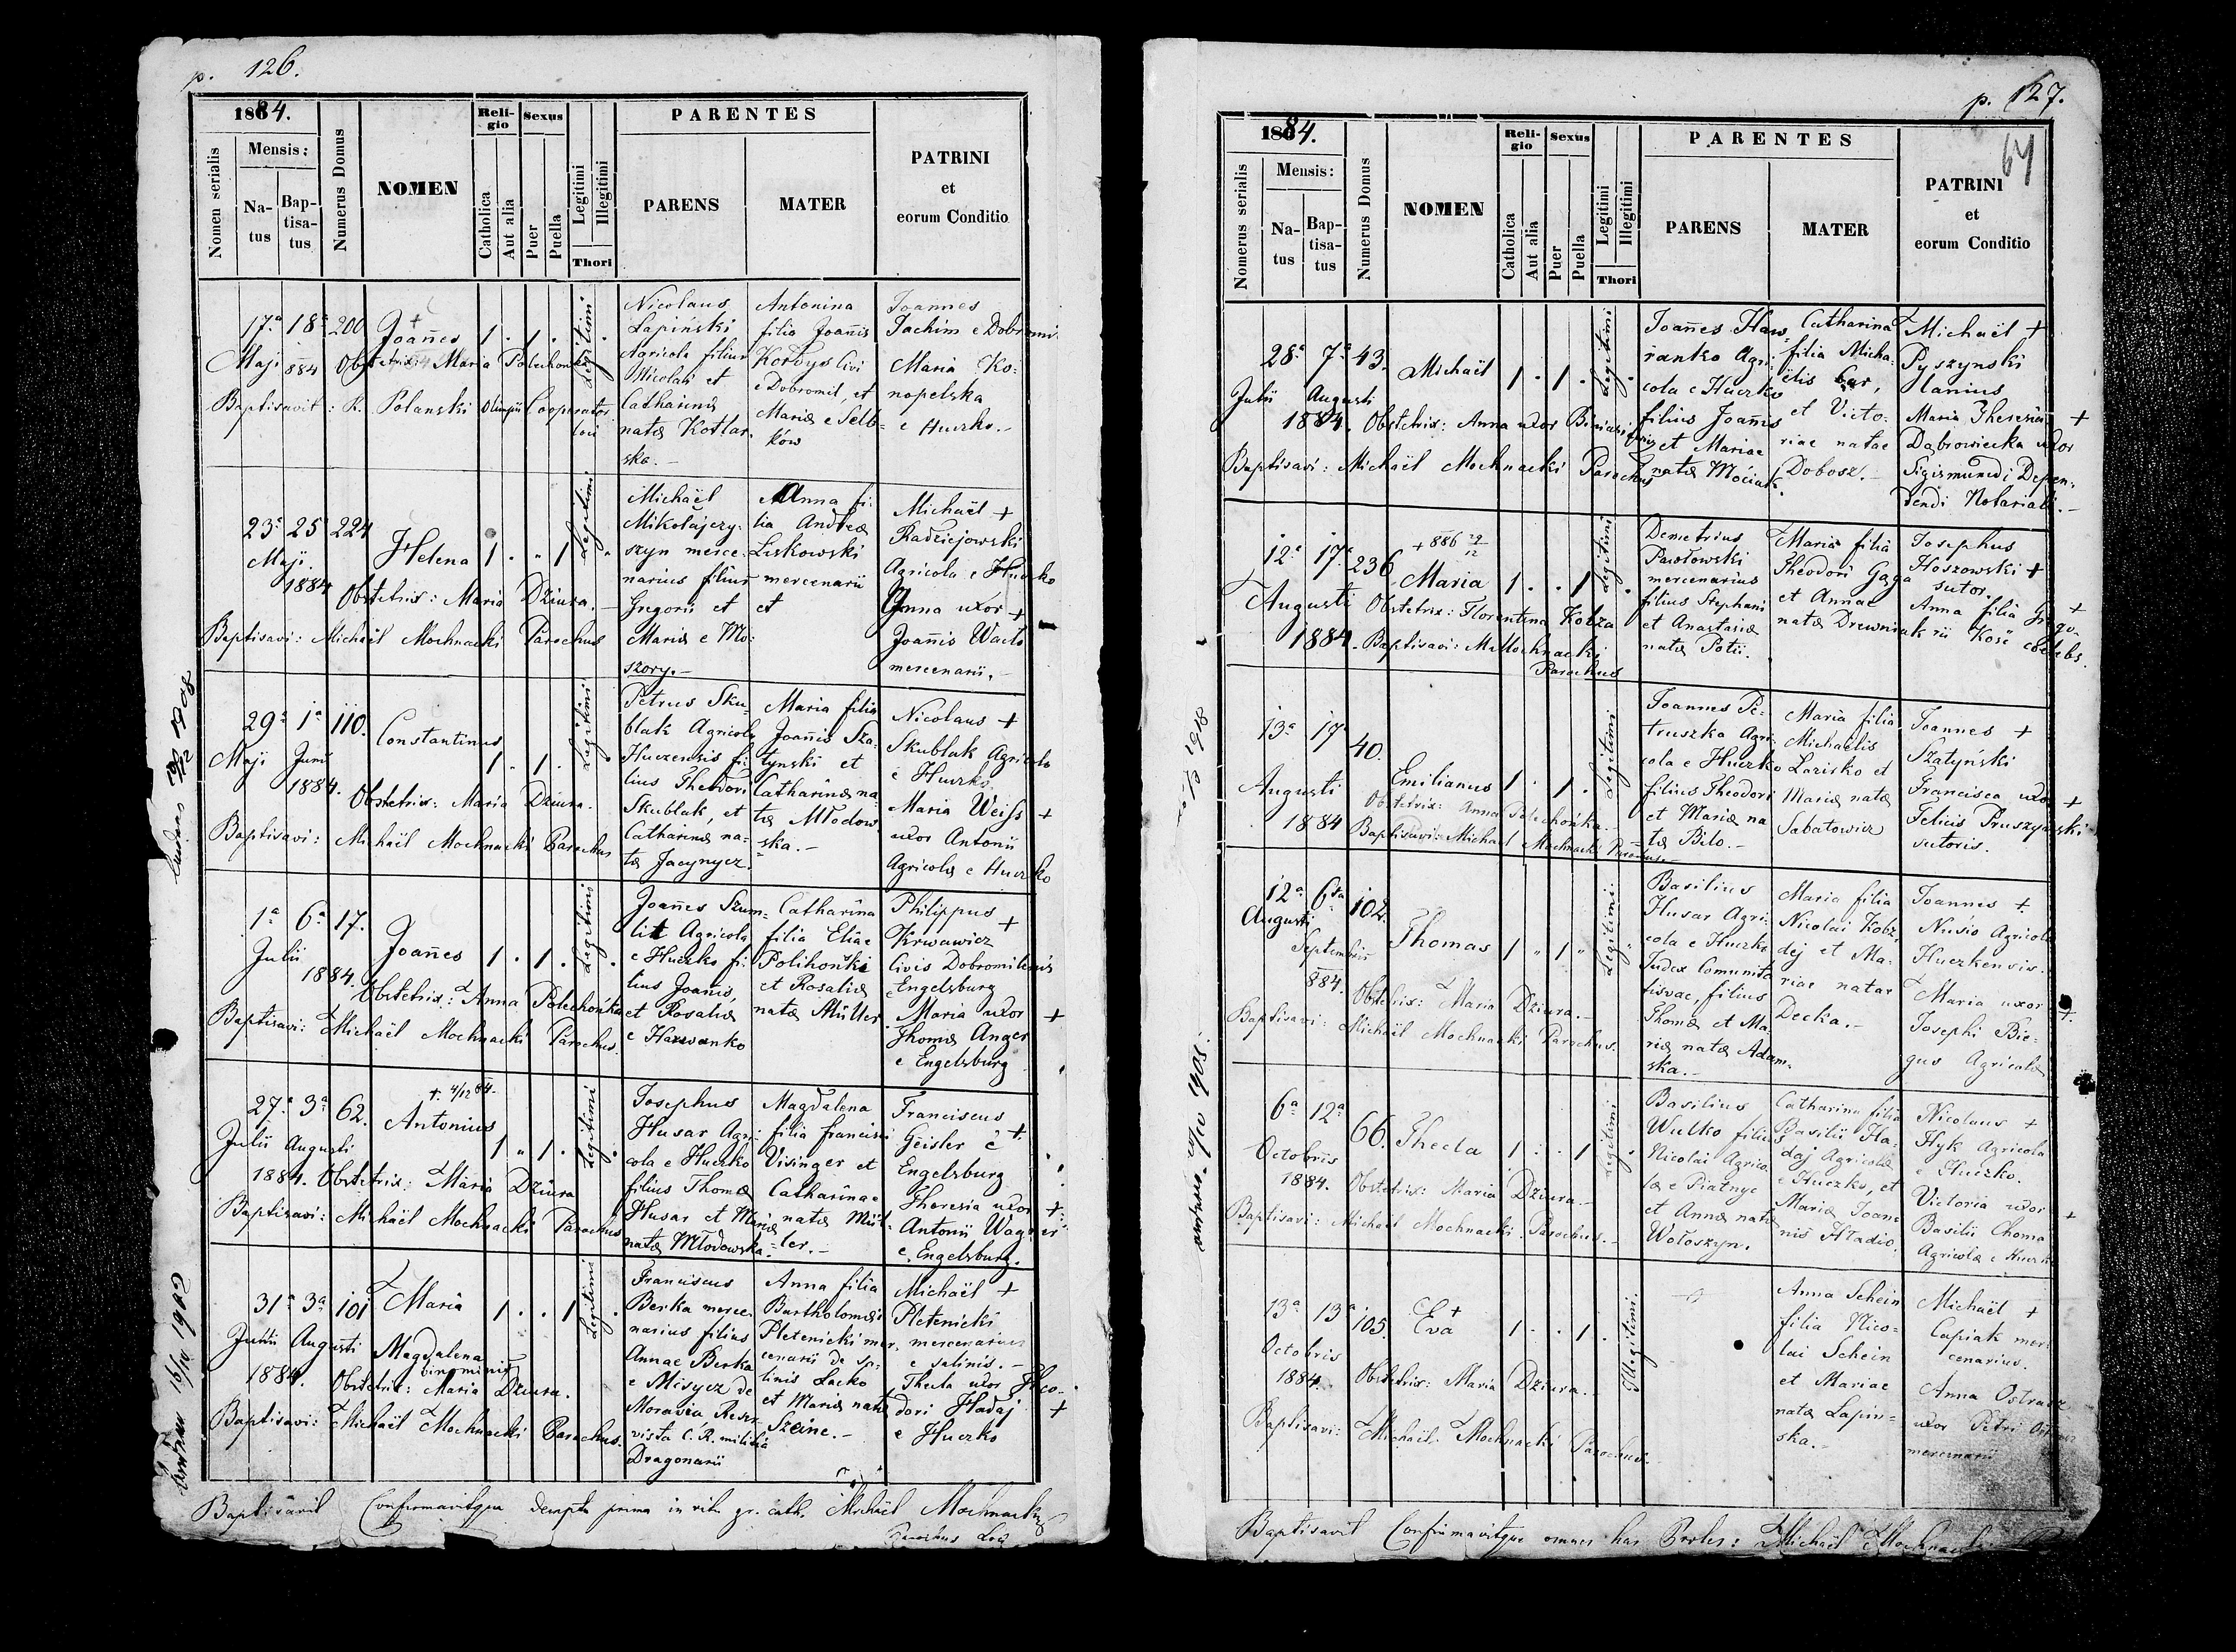 p. 126.
1884.
Nomen serialis
Mensis:
Natus
Baptisatus
Numerus Domus
NOMEN
Religio
Catholica
Aut alia
Sexus
Puer
Puella
Legitimi
Illegitimi
Thori
PARENTES
PARENS
MATER
PATRINI
et
eorum Conditio
17ª 18ª 200 Joañes 1 . 1 .
Maji 884 Obstetrix Maria
Baptisavit: R. Polanski Cooperator
loci
Legitimi
Nicolaus
Lapiński
Agricola filius
Nicolai et
Catharinæ
natæ Kotlar
ska.-
Antonina
filia Joañis
Kordys Civi
e Dobromil, et
Mariæ e Selb-
ków
Joannes
Jachim e Dobromil
Maria Ko-
nopelska
e Huczko.-
23ª 25ª 224
Maji Helena 1 . " 1
1884 Obstetrix: Maria Dziura.-
Baptisavi: Michaël Mochnacki Parochus
Legitimi
Michaël
Mikołajczy-
szyn merce-
narius filius
Gregorii et
Mariæ e Mo-
szory.-
Anna fi-
lia Andreæ
Liskowski
mercenarii
et
Michaël +
Radziejowski
Agricola e Huczko
Anna uxor +
Joañis Wacło
mercenarii.
29ª 1ª 110. Constantinus
Maji Junii 1 . 1 .
1884. Obstetrix: Maria Dziura.
Baptisavi: Michaël Mochnacki Parochus
Legitimi
Petrus Sku-
blak Agricola
Huczensis fi-
lius Theodori
Skublak, et
Catharinæ na-
tæ Jacynycz.
Maria filia
Joañis Sza-
tynski et
Catharinæ na-
tæ Młodow
ska.-
Nicolaus +
Skublak Agricola
e Huczko
Maria Weiss +
uxor Antonii
Agricolæ e Huczko
1ª 6ª 17.
Julii Joañes 1 . 1 .
1884. Obstetrix: Anna Polechońka
Baptisavi: Michaël Mochnacki Parochus.
Legitimi
Joañes Szum-
lit Agricola
e Huczko fi-
lius Joanis,
et Rosaliæ
e Hawranko
Catharina
filia Eliae
Polihońki
et Rosaliæ
natæ Müller
Philippus
Krwawicz +
Civis Dobromilensis
e Engelsburg
Maria uxor +
Thomæ Anger
e Engelsburg
27ª 3ª 62. +. 4/12 84.
Antonius
Julii Augusti 1 " 1 .
1884. Obstetrix: Maria Dziura
Baptisavi: Michaël Mochnacki Parochus
Legitimi
Josephus
Husar Agri-
cola e Huczko
filius Thomæ
Husar et Mariæ
natæ Młodowska.
Magdalena
filia Francisci
Visinger et
Catharinae
natæ Mül-
ler.-
Franciscus
Geisler e +
Engelsburg
Theresia uxor +
Antonii Wagner
e Engelsburg.
31ª 3ª 101 Maria 1 . . 1 .
Julii Augusti Magdalena
binominis
1884. Obstetrix: Maria Dziura.
Baptisavi: Michaël Mochnacki Parochus.
Legitimi
Franciscus
Berka merce
narius filius
Annae Berka
e Misycz de
Moravia Reser
vista C. R. militiæ
Dragonarii
Anna filia
Bartholomæi
Pletenicki mer
cenarii de sa-
linis Lacko
et Mariæ natæ
Szeine.-
Michaël +
Pletenicki
mercenarius
e salinis.-
Thecla uxor Theo-
dori Hadaj +
e Huczko
Baptisavit Confirmavitque dempta prima in ritu gr. cath. Michaël Mochnacki
Parochus Loci
p. 127.
64
1884.
Nomerus serialis
Mensis:
Natus
Baptisatus
Numerus Domus
NOMEN
Religio
Catholica
Aut alia
Sexus
Puer
Puella
Legitimi
Illegitimi
Thori
PARENTES
PARENS
MATER
PATRINI
et
eorum Conditio
28ª 7ª 43. Michaël 1 . 1 .
Julii Augusti
1884. Obstetrix: Anna uxor
Baptisavi: Michaël Mochnacki Parochus
Legitimi
Joañes Haw
ranko Agri-
cola e Huczko
filius Joañis
et Mariae
natæ Mociak.
Catharina
filia Micha-
ëlis Car,
et Victo-
riae natae
Dobosz.-
Michaël +
Pyszynski
lanius
Maria Theresia +
Dąbrowiecka uxor
Sigismundi Depen-
dendi Notariali.-
12ª 17ª 236 +886 29/12
Maria 1 . . 1 .
Augusti Obstetrix: Florentina Kobza
1884. Baptisavi: M Mochnacki
Parochus
Legitimi
Demetrius
Pawłowski
mercenarius
filius Stephani
et Anastasiæ
natæ Potii.
Maria filia
Theodori Gaga
et Annae
natæ Drewniak
Josephus
Hoszowski +
sutor.
Anna filia Grego- +
rii Kość cælebs.
13ª 17ª 40.
Augusti Emilianus 1 . 1 .
Obstetrix: Anna Polechońka.-
1884 Baptisavi: Michael Mochnacki Parochus.-
Legitimi
Joannes Pe-
truszka Agri-
cola e Huczko
filius Theodori
et Mariæ na
tæ Bilo.-
Maria filia
Michaëlis
Lazisko et
Mariæ natæ
Sabatowicz
Joannes +
Szatyński
Francisca uxor +
Felicis Pruszynski
sutoris.
12ª 6ta 102.
Augusti
Septembris Thomas 1 " 1 "
884. Obstetrix: Maria Dziura.-
Baptisavi: Michaël Mochnacki Parochus.
Legitimi
Basilius
Husar Agri-
cola e Huczko
Judex Comunita
tisvae, filius
Thomæ et Ma-
riæ natæ Adam-
ska.-
Maria filia
Nicolai Kobz
dej et Ma-
riae natae
Decka.-
Joannes +
Nusio Agricola
Huczkensis.
Maria uxor +
Josephi Bie-
gus Agricolæ
6ª 12ª 66. Thecla 1 . . 1
Octobris
1884. Obstetrix: Maria Dziura.-
Baptisavi: Michael Mochnacki. Parochus.-
Legitimi
Basilius
Wulko filius
Nicolai Agrico-
læ e Piatnyc
et Annæ natæ
Wołoszyn.
Catharina filia
Basilii Ha-
daj Agricolæ
e Huczko, et
Mariæ Joan-
nis Hładio.
Nicolaus +
Hyk Agricola
e Huczko.
Victoria uxor +
Basilii Choma
Agricolæ e Huczk
13ª 13ª 105. Eva + 1 . . 1 .
Octobris
1884. Obstetrix: Maria Dziura.-
Baptisavi: Michaël Mochnacki Parochus.
Illegitimi.
Anna Schein
filia Nico-
lai Schein
et Mariae
natæ Lapin-
ska.-
Michaël +
Capiak mer-
cenarius.
Anna
uxor Petri
mercenarii
Baptisavit Confirmavitque omnes has Proles: Michaël Mochnacki